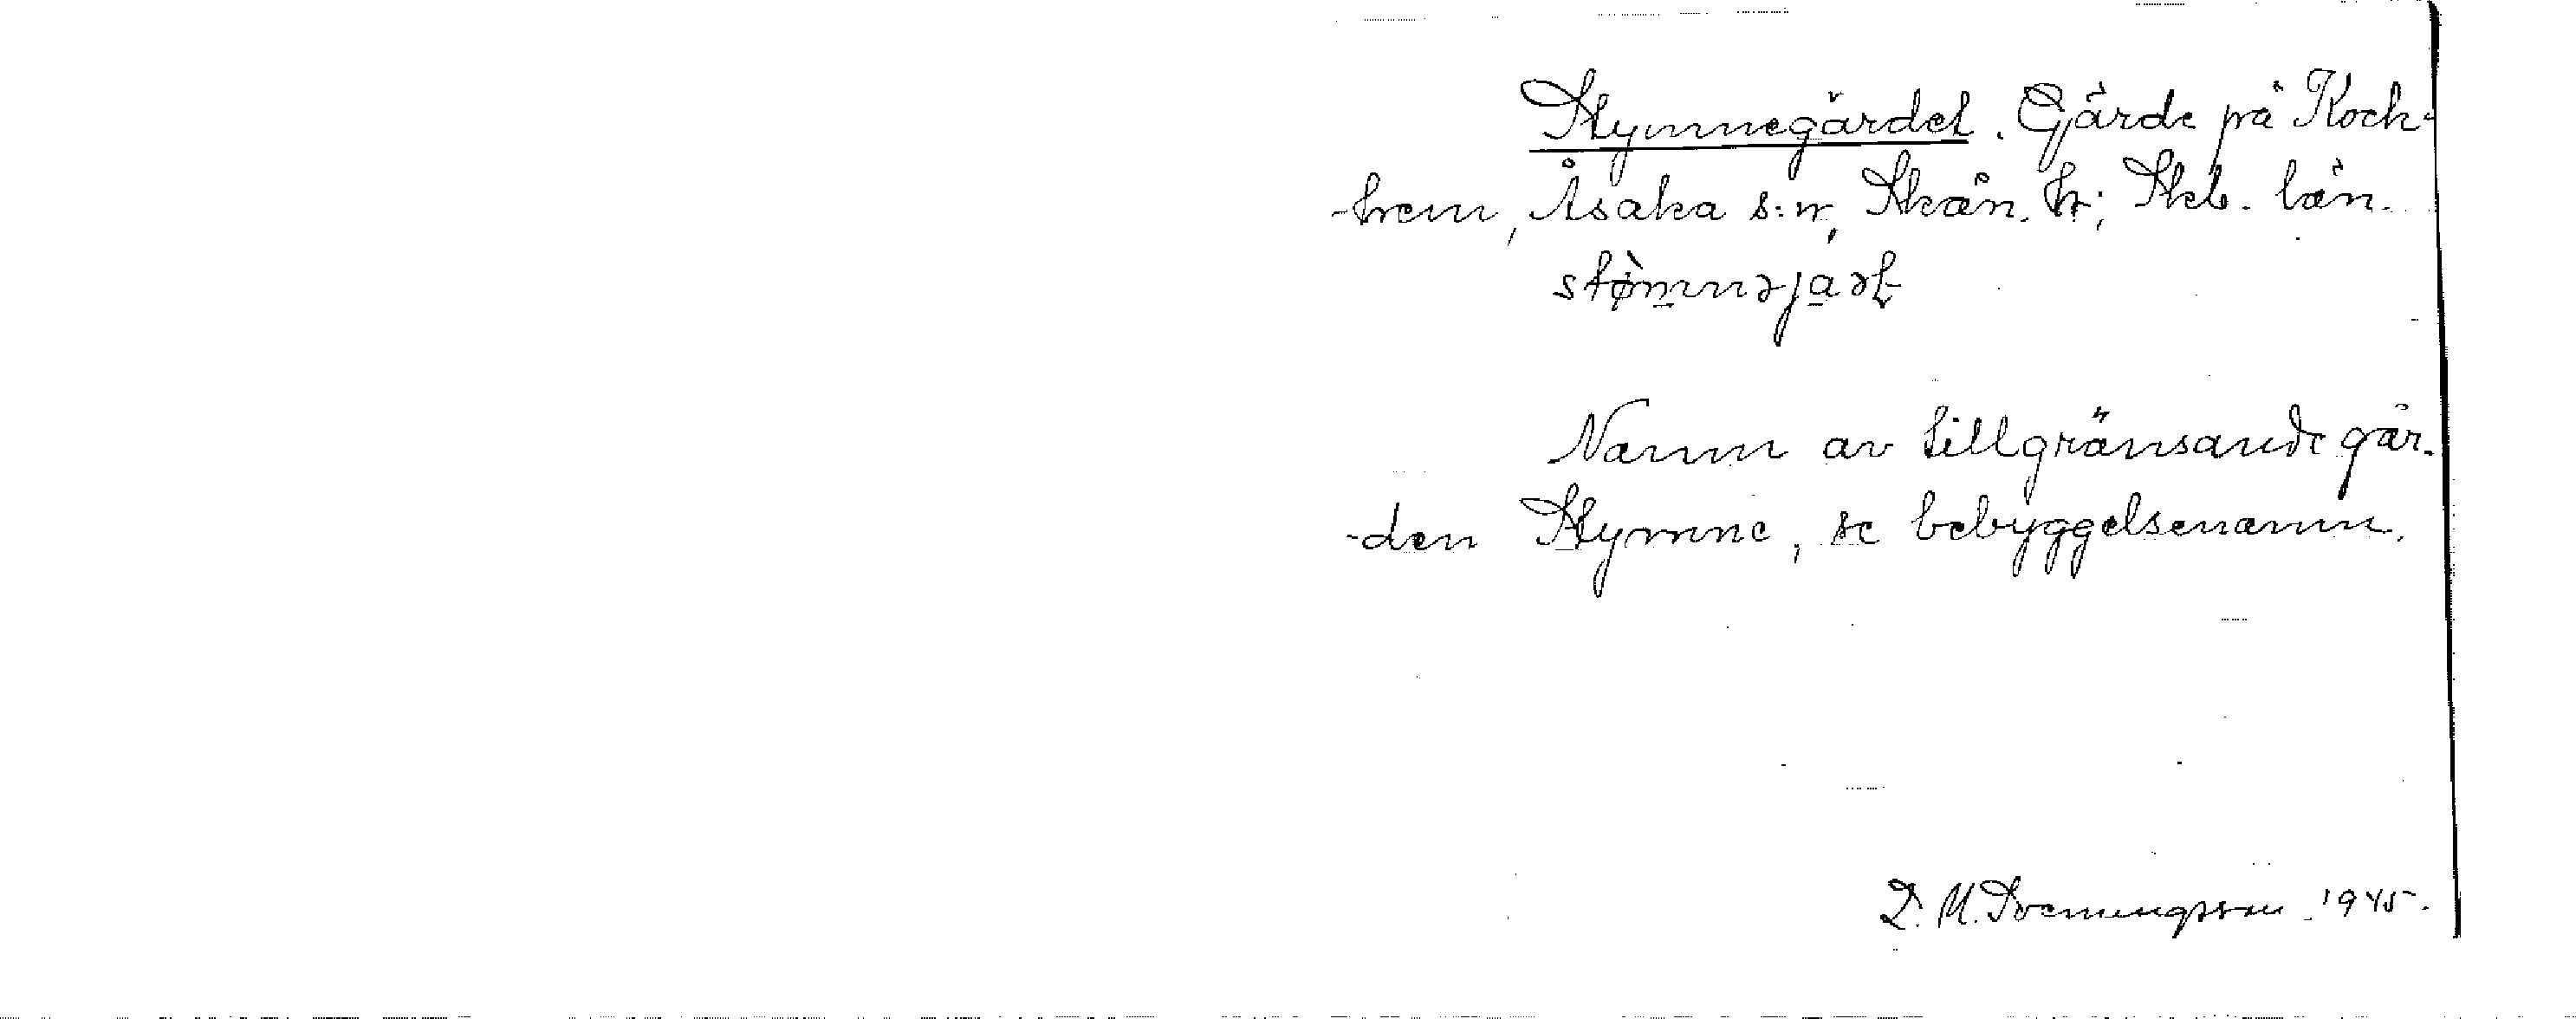 Stymnegärdet. Gärde på Kock-
-hem, Åsaka s:n, Skån. hr; Skb. län.
stømnəjaʀt
Namn av tillgränsande går-
-den Stymne, se bebyggelsenamn.
1945.